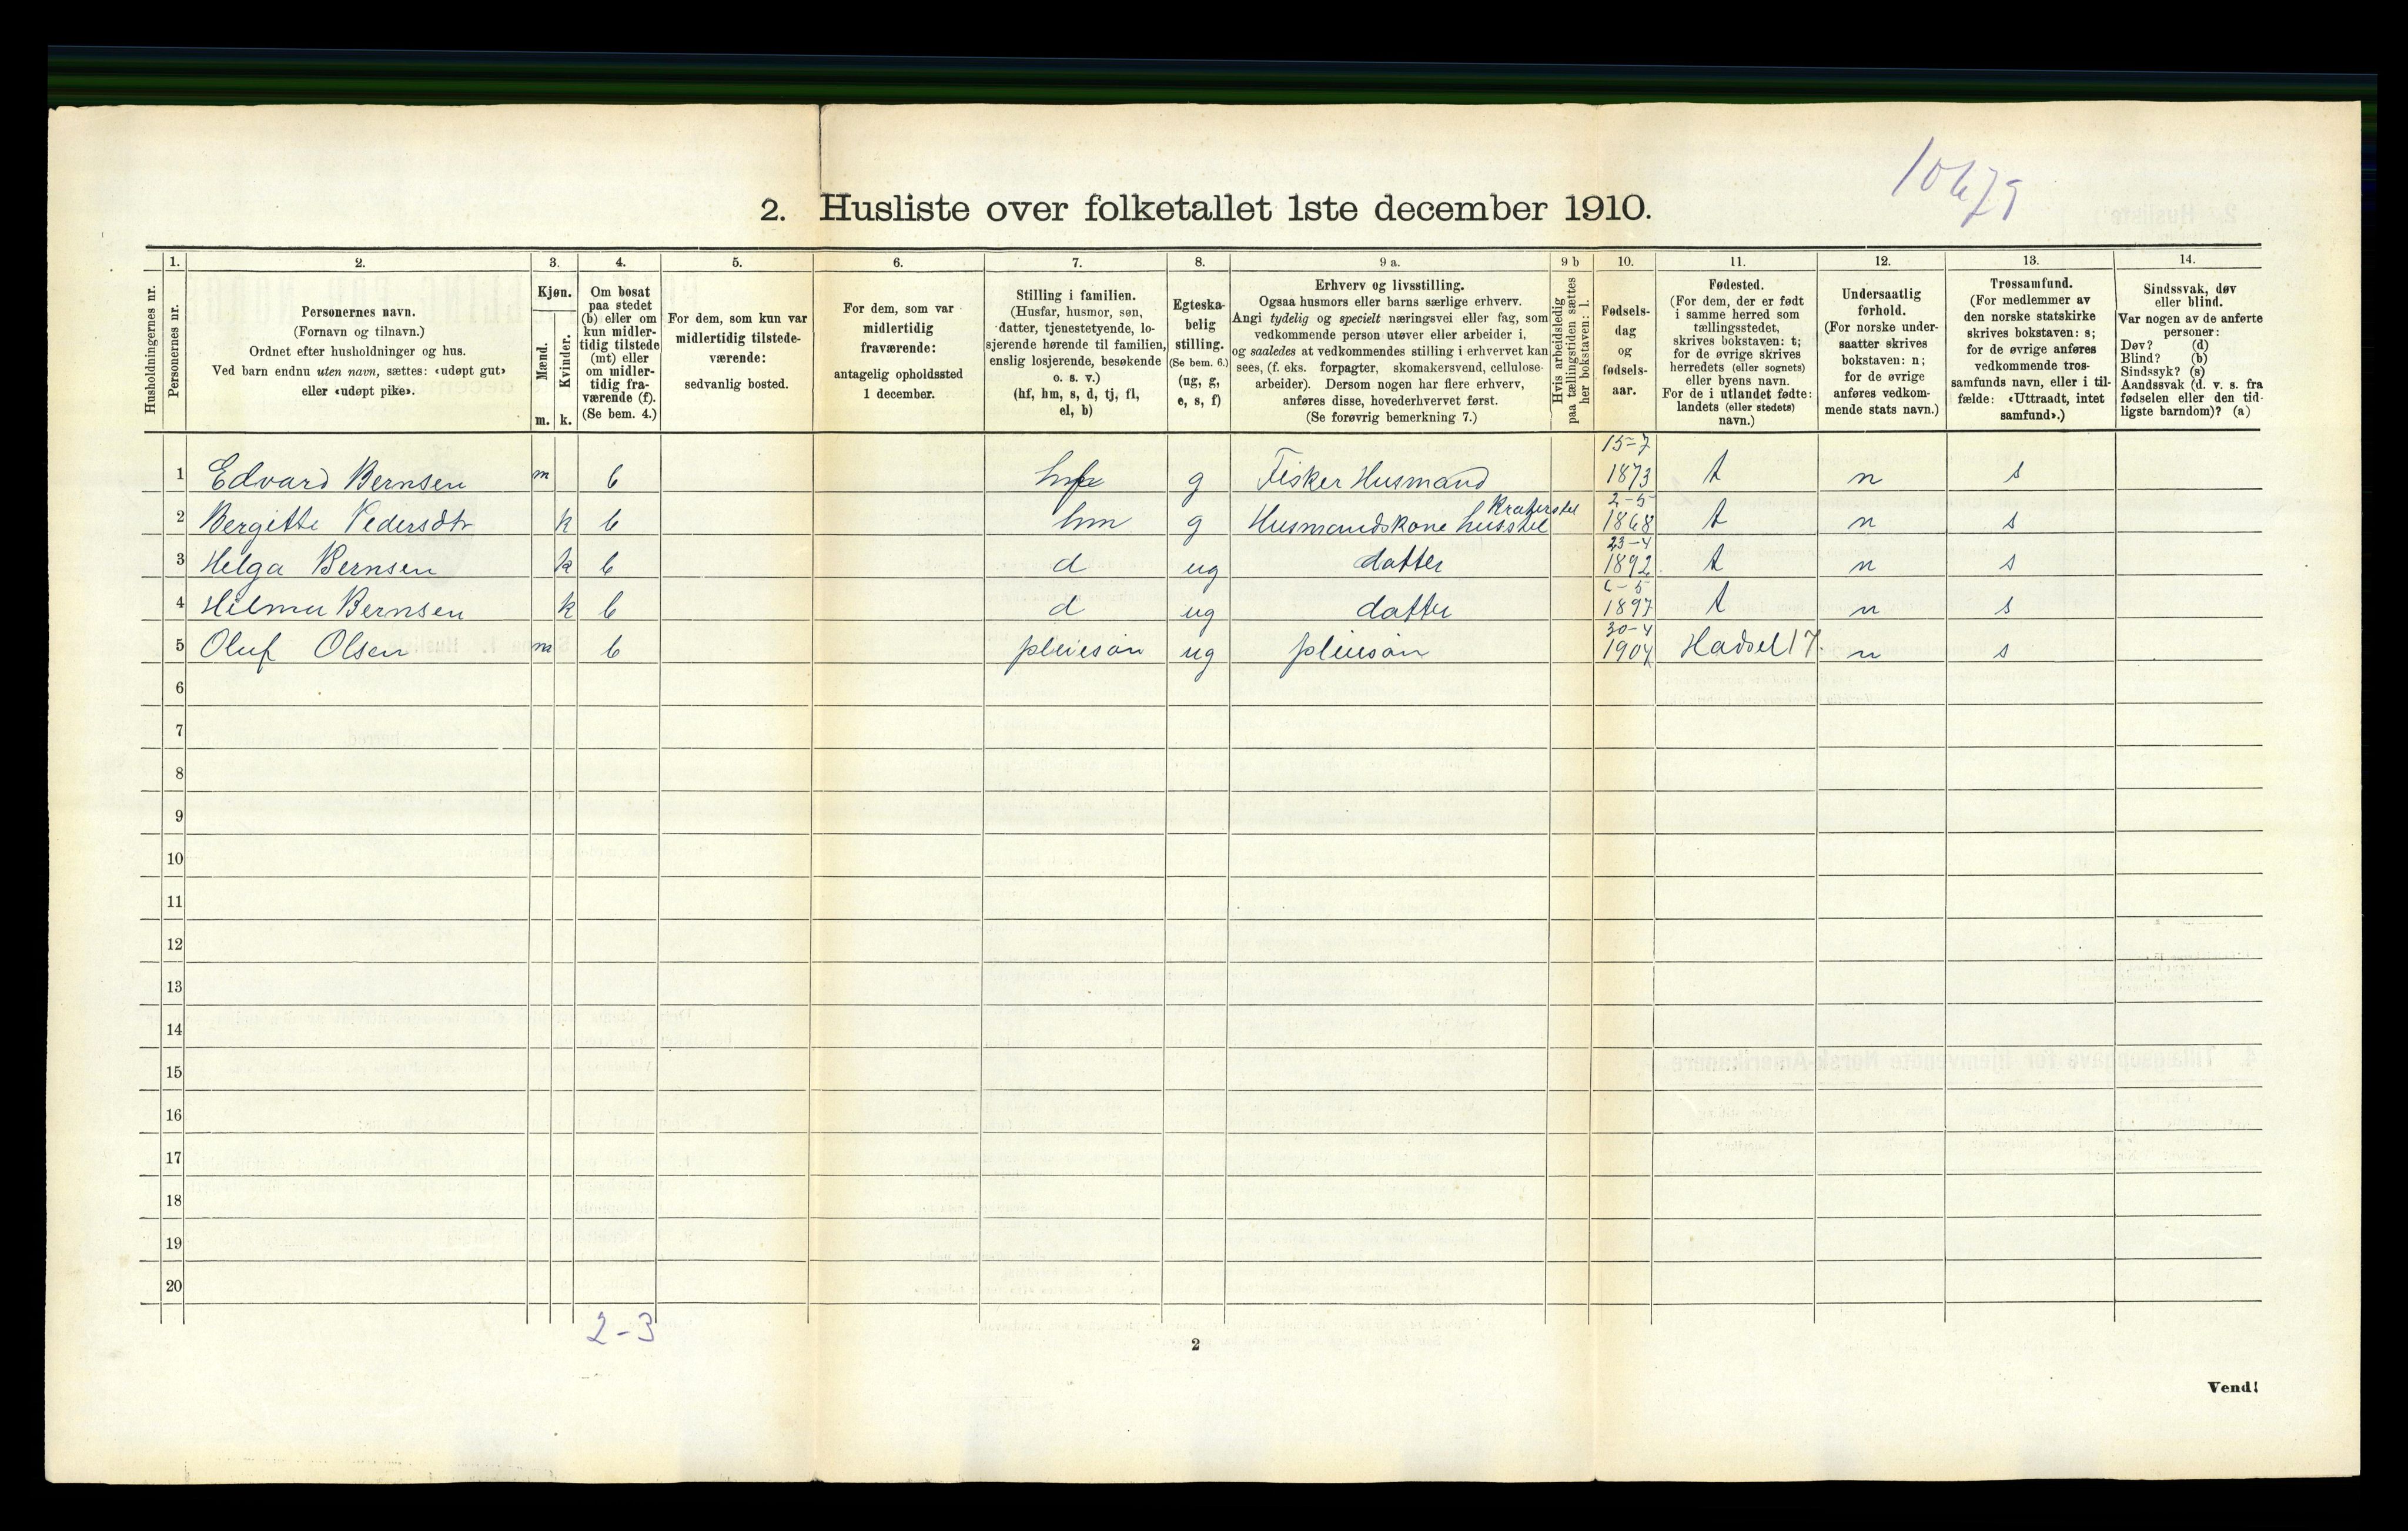 2. Husliste over folketallet 1ste december 1910.
Husholdningernes nr.
1.
Personernes nr.
2.
Personernes navn.
(Fornavn og tilnavn.)
Ordnet efter husholdninger og hus.
Ved barn endnu uten navn, sættes: «udøpt gut»
eller «udøpt pike».
3.
Kjøn.
Mænd.
Kvinder.
m. k.
4.
Om bosat
paa stedet
(b) eller om
kun midler-
tidig tilstede
(mt) eller
om midler-
tidig fra-
værende (f).
(Se bem. 4.)
5.
For dem, som kun var
midlertidig tilstede-
værende:
sedvanlig bosted.
6.
For dem, som var
midlertidig
fraværende:
antagelig opholdssted
1 december.
7.
Stilling i familien.
(Husfar, husmor, søn,
datter, tjenestetyende, lo-
sjerende hørende til familien,
enslig losjerende, besøkende
o. s. v.)
(hf, hm, s, d, tj, fl,
el, b)
8.
Egteska-
belig
stilling.
(Se bem. 6.)
(ug, g,
e, s, f)
9 a.
Erhverv og livsstilling.
Ogsaa husmors eller barns særlige erhverv.
Angi tydelig og specielt næringsvei eller fag, som
vedkommende person utøver eller arbeider i,
og saaledes at vedkommendes stilling i erhvervet kan
sees, (f. eks. forpagter, skomakersvend, cellulose-
arbeider). Dersom nogen har flere erhverv,
anføres disse, hovederhvervet først.
(Se forøvrig bemerkning 7.)
9 b
Hvis arbeidsledig
paa tællingstiden sættes
her bokstaven: l.
10.
Fødsels-
dag
og
fødsels-
aar.
11.
Fødested.
(For dem, der er født
i samme herred som
tællingsstedet,
skrives bokstaven: t;
for de øvrige skrives
herredets (eller sognets)
eller byens navn.
For de i utlandet fødte:
landets (eller stedets)
navn.)
12.
Undersaatlig
forhold.
(For norske under-
saatter skrives
bokstaven: n;
for de øvrige
anføres vedkom-
mende stats navn.)
13.
Trossamfund.
(For medlemmer av
den norske statskirke
skrives bokstaven: s;
for de øvrige anføres
vedkommende tros-
samfunds navn, eller i til-
fælde: «Uttraadt, intet
samfund».)
14.
Sindssvak, døv
eller blind.
Var nogen av de anførte
personer:
Døv? (d)
Blind? (b)
Sindssyk? (s)
Aandssvak (d. v. s. fra
fødselen eller den tid-
ligste barndom)? (a)
15-7
1 Edvard Bernsen m b g Fisker Husmand 1873 t n s
2-5
2 Bergitte Pedersdtr k b hm g Husmandskone husstel 1868 t n s
23-4
3 Helga Bernsen k b d ug datter 1892 t n s
6-5
4 Hilma Bernsen k b d ug datter 1897 t n s
30-4
5 Oluf Olsen m b pleiesøn ug pleiesøn 1904 Hadsel 17 n s
6
7
8
9
10
11
12
13
14
15
16
17
18
19
20
2-3
2
Vend!